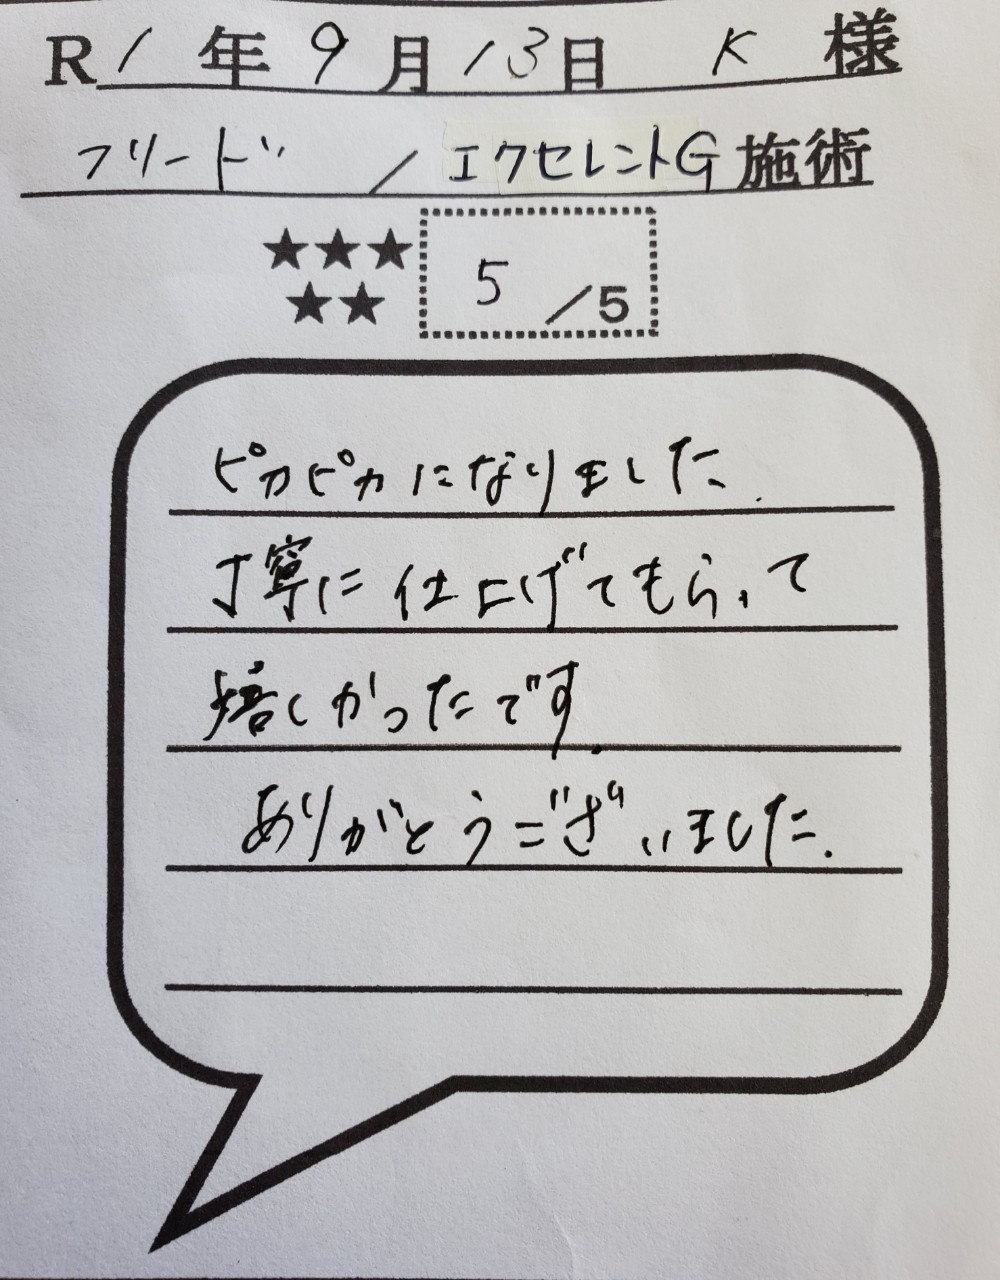 R1年9月13日 K 様
フリード / エクセレントG 施術
★★★
★★
5 /5
ピカピカになりました.
丁寧に仕上げてもらって
嬉しかったです.
ありがとうございました.